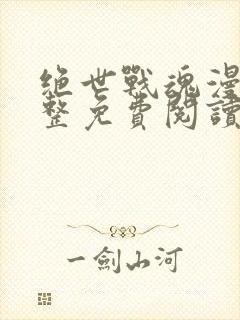 絕世戰魂漫
整免費閱讀
一劍山河